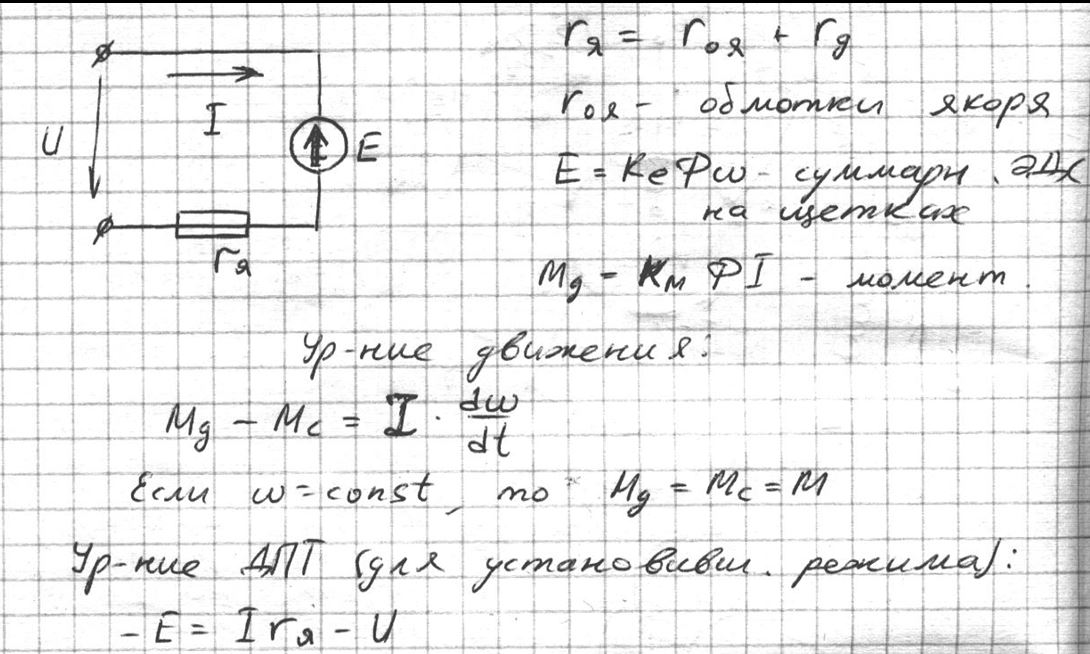 I
U
E
rя
rя = rоя + rд
rоя - обмотки якоря
E = KeФω - суммарн. ЭДС
на щетках
Mд = Kм ФI - момент.
Ур-ние движения:
Mд - Mc = I · dω/dt
Если ω = const, то Mд = Mc = M
Ур-ние ДПТ (для установивш. режима):
- E = I rя - U